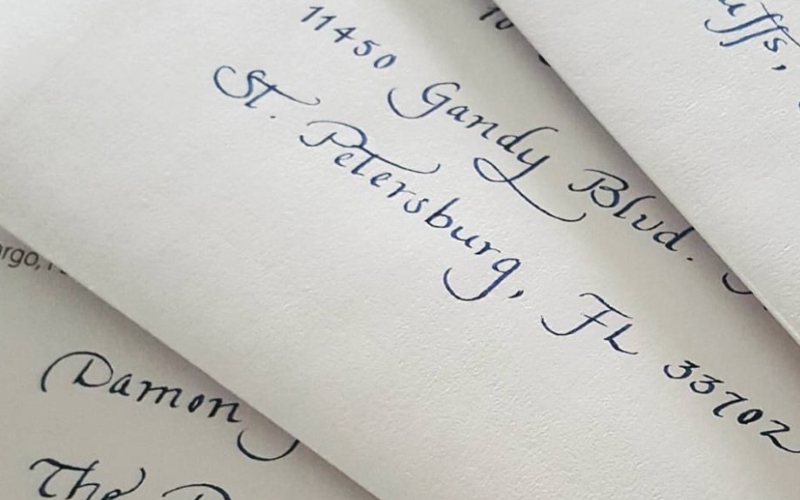 11450 Gandy Blvd.
St. Petersburg, FL 33702
Damon
The